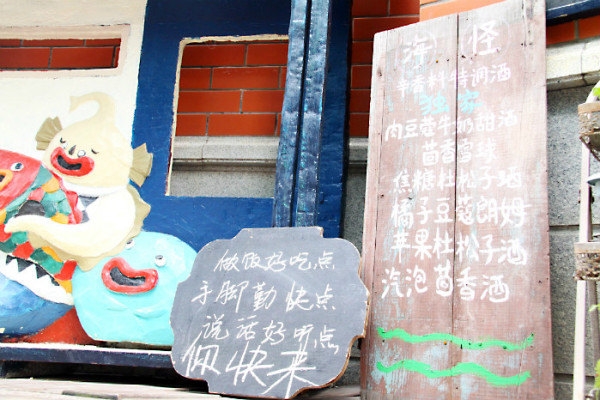 做饭好吃点
手脚勤快点
说话好听点
佩快来
海怪
辛香料特调酒
独家
肉豆蔻牛奶甜酒
茴香富华
焦糖杜松子酒
橘子豆蔻朗姆
苹果杜松子酒
汽泡茴香酒